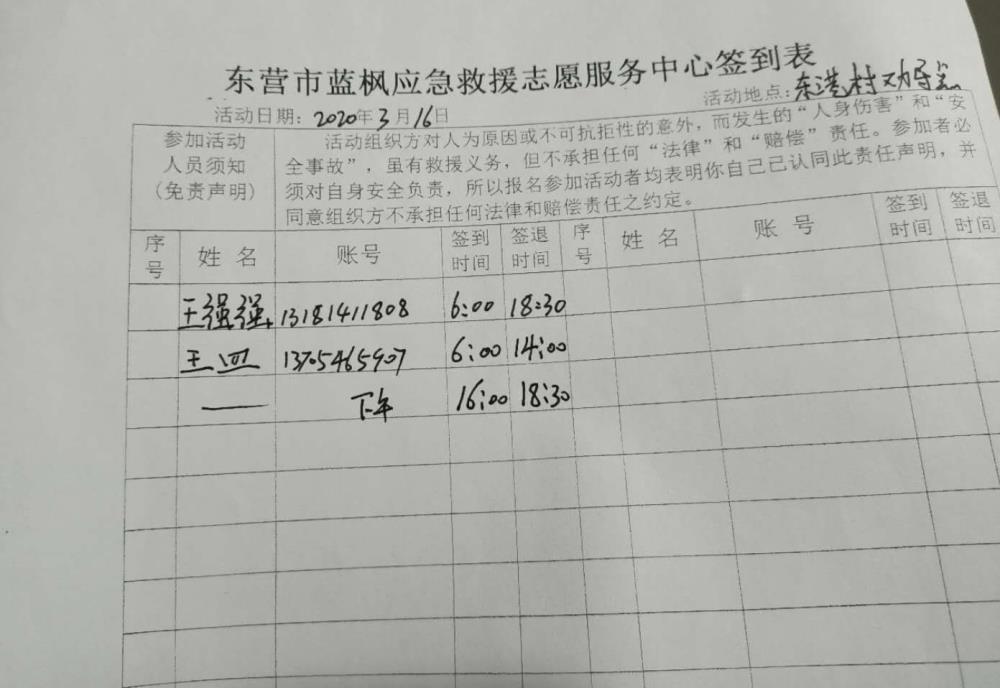 东营市蓝枫应急救援志愿服务中心签到表
活动日期：2020年3月16日 活动地点：东港村劝导点
参加活动人员须知（免责声明）
活动组织方对人为原因或不可抗拒性的意外，而发生的“人身伤害”和“安
全事故”，虽有救援义务，但不承担任何“法律”和“赔偿”责任。参加者必
须对自身安全负责，所以报名参加活动者均表明你自己已认同此责任声明，并
同意组织方不承担任何法律和赔偿责任之约定。
序号 姓名 账号 签到时间 签退时间 序号 姓名 账号 签到时间 签退时间
王强强 13181411808 6:00 18:30
王四 13705465907 6:00 14:00
— 下午 16:00 18:30